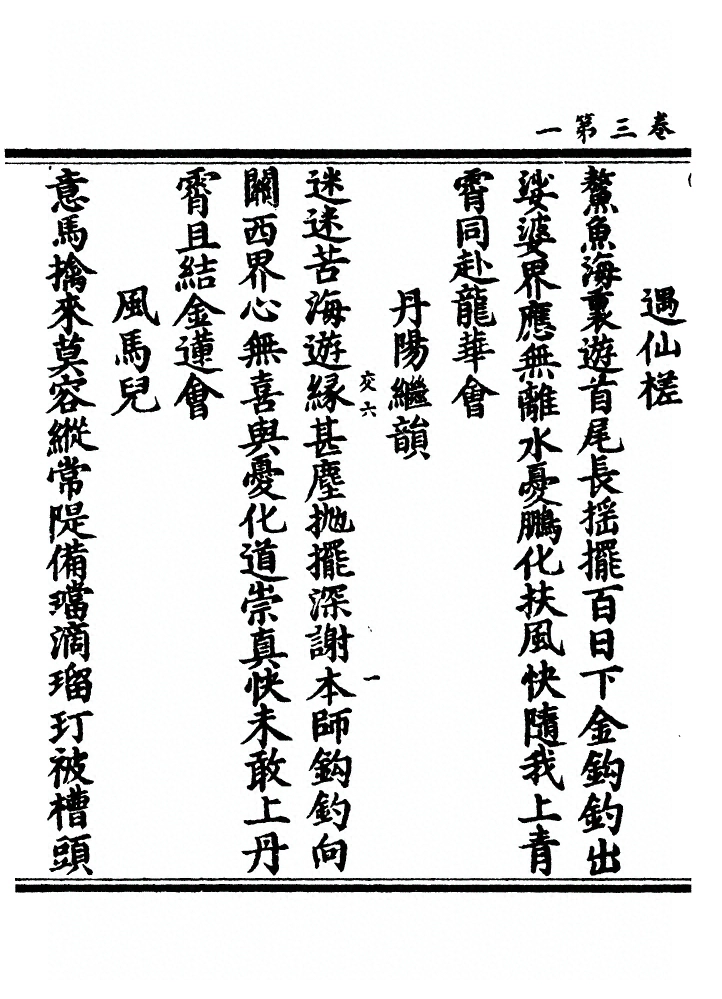 卷三第一
遇仙槎
鰲魚海裏遊首尾長揺擺百日下金鈎釣出
娑婆界應無離水憂鵬化扶風快隨我上青
霄同赴龍華會
丹陽繼韻
交六
一
迷迷苦海遊縁甚塵抛擺深謝本師鈎釣向
關西界心無喜與憂化道崇真快未敢上丹
霄且結金蓮會
風馬兒
意馬擒來莫容縱常隄備璫滴瑠玎被槽頭